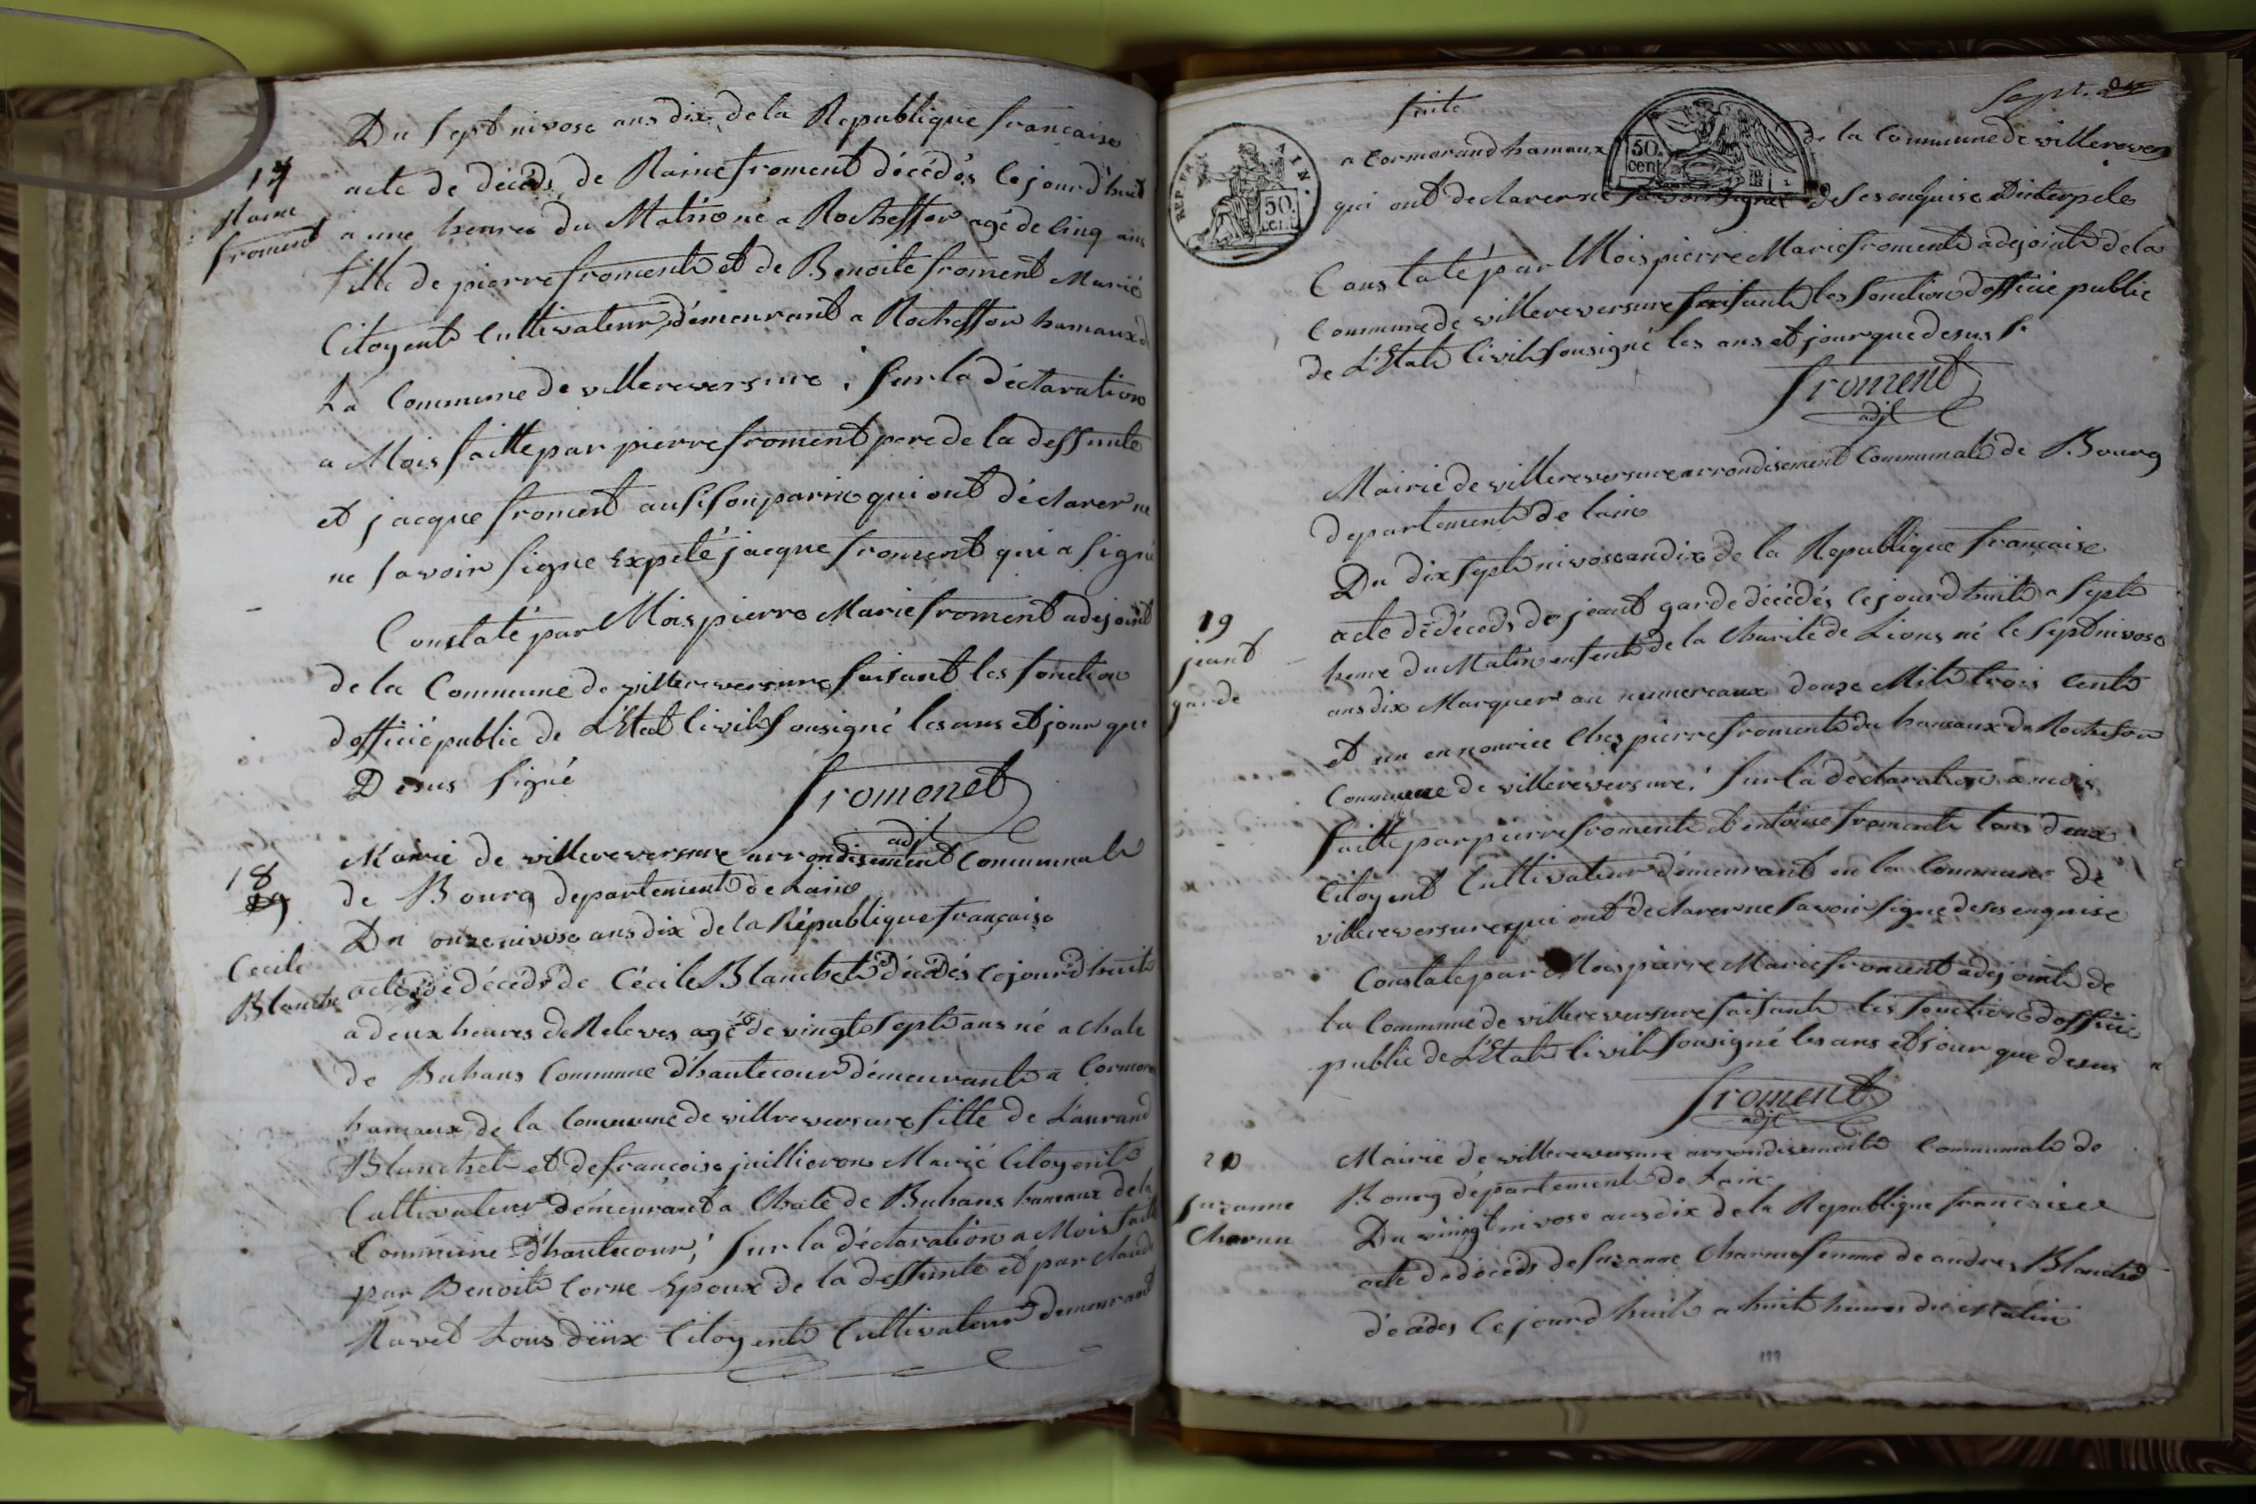 Du sept nivose ans dix de la Republique francaise
17
Raine
froment
acte de décéds de Raine froment décédés cejourd'huit
a une heures du Matin né a Rocheffor agé de cinq ans
fille de pierre froment et de Benoite froment Marié
Citoyent Cultivateur démeurant a Rocheffor hamaux d
La Commune de villereversure, sur la déclaration
a Mois faitte par pierre froment pere de la deffunte
et jacque froment ausi son parin qui ont déclarer ne
ne savoir signe Expeté jacque froment qui a signé
Constaté par Mois pierre Marie froment adejoint
de la Commune de villereversure faisant les fonction
d'officié public de L'Etat Civil sousigné les ans et jour que
Desus signé
froment
adjt
18
19
Mairie de villereversure arrondisement Communale
de Bourg departement de Lain
Du onze nivose ans dix de la République française
Cecile
Blanche
acte de décéds de Cécile Blanchet décédés cejourd'huit
a deux heures de Releves agé de vingt sept ans né a chate
de Buhans Commune d'hautecour démeurant a Cormoran
hamaux de la Commune de villreversure fille de Laurand
Blanchet et de françoise juillieron Marié Citoyent
Cultivateur démeurant a Chate de Buhans hameaux de la
Commune d'hautecour, sur la déclaration a Mois faitte
par Benoit Corne Epoux de la deffunte et par claude
Ravet tous deux Citoyent Cultivateur demeurant
suite
REP. FRA.
AIN.
50
CENT.
50
cent
Sept.
a Cormorand hamaux de la Commune de villerever
qui ont declarer ne savoir signer de ses enquise et interpele
Constaté par Mois pierre Marie froment adejoint de la
Commune de villereversure faisant les fonction d'officié public
de L'Etat Civil sousigné les ans et jour que desus s.
froment
adjt
Mairie de villereversure arrondisement Communale de Bourg
departement de lain
Du dix sept nivose an dix de la Republique française
19
jeant
garde
acte de décéds de jeant garde décédés cejourd'huit a sept
heure du Matin enfent de la Charité de Lions né le sept nivose
ans dix Marquer au numeraux douze Mile trois Cents
et un en nourice Chez pierre froment du hamaux de Rochefor
Commune de villereversure, sur la déclaration a mois
faitte par pierre froment et entoine froment tous deux
Citoyent Cultivateur démeurant en la Commune de
villereversure qui ont declarer ne savoir signe de ses enquise
Constate par Mois pierre Marie froment adejoint de
la Commune de villereversure faisant les fonction d'officié
public de L'Etat Civil sousigné les ans et jour que desus
froment
adjt
20
suzanne
Charnu
Mairie de villereversure arrondisement Communale de
Bourg département de Lain
Du vingt nivose ans dix de la Republique française
acte de décéds de suzanne Charnu femme de andre Blanchet
décédes Cejourd'huit a huit heures du Matin